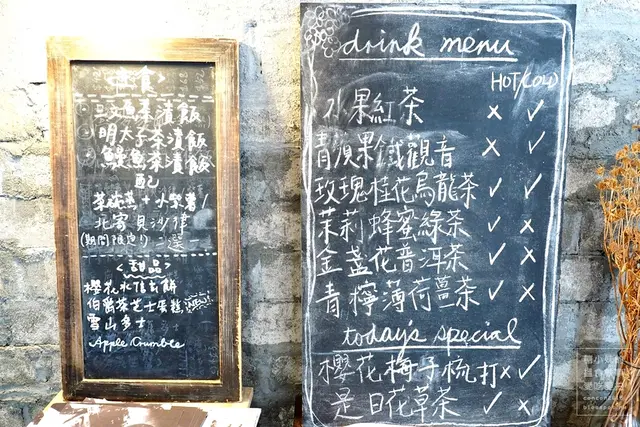 <主食>
三文魚茶漬飯
明太子茶漬飯
鰻魚茶漬飯
配
茶碗蒸+小紫薯/
北寄貝沙律
(期間限定!) 二選一
<甜品>
櫻花水信玄餅
伯爵茶芝士蛋糕
雪山多士
Apple Crumble
drink menu
HOT/COLD
水果紅茶 × ✓
青蘋果鐵觀音 × ✓
玫瑰桂花烏龍茶 ✓ ✓
茉莉蜂蜜綠茶 ✓ ×
金盞花普洱茶 ✓ ×
青檸薄荷薑茶 ✓ ×
today's special
櫻花梅子梳打 × ✓
是日花草茶 ✓ ×